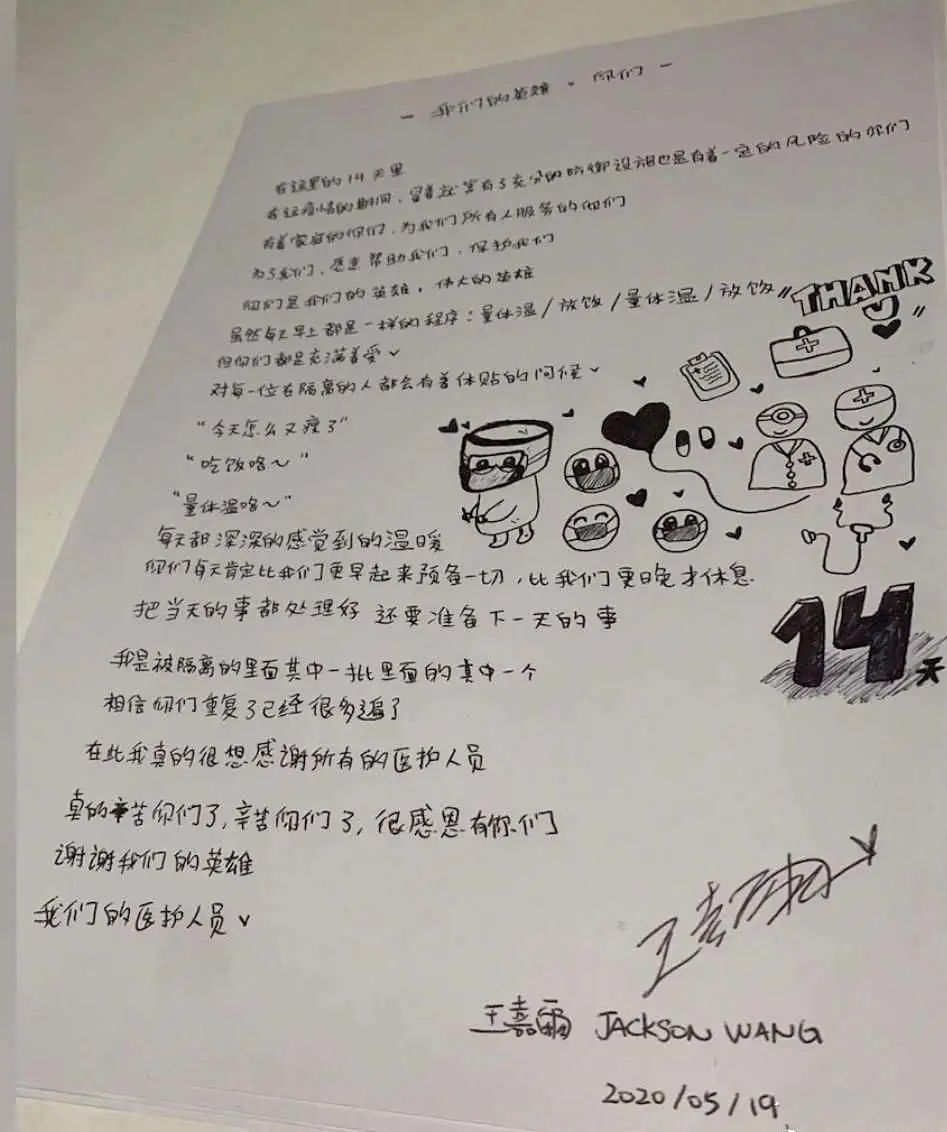 — 我们的英雄、你们 —
在这里的14天里
在这疫情的期间，冒着就算有了充分的防御设施也是有着一定的风险的你们
有着家庭的你们，为我们所有人服务的你们
为了我们，愿意帮助我们，保护我们
你们是我们的英雄，伟大的英雄
虽然每天早上都是一样的程序：量体温/放饭/量体温/放饭
但你们都是充满着爱
对每一位在隔离的人都会有着体贴的问候
“今天怎么又瘦了”
“吃饭咯～”
“量体温咯～”
每天都深深的感觉到的温暖
你们每天肯定比我们更早起来预备一切，比我们更晚才休息
把当天的事都处理好 还要准备下一天的事
我是被隔离的里面其中一批里面的其中一个
相信你们重复了已经很多遍了
在此我真的很想感谢所有的医护人员
真的辛苦你们了，辛苦你们了，很感恩有你们
谢谢我们的英雄
我们的医护人员
"THANK
U"
14天
王嘉爾
王嘉爾 JACKSON WANG
2020/05/19